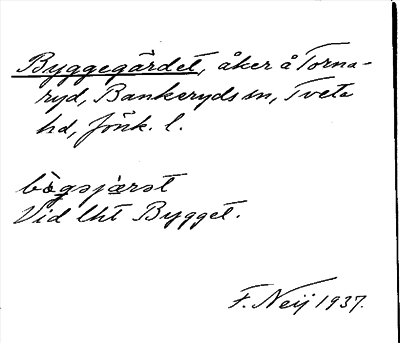 Byggegärdet, åker å Torna-
ryd, Bankeryds sn, Tveta
hd, Jönk. l.
bögsjærst
Vid lht Bygget.
F. Neij 1937.